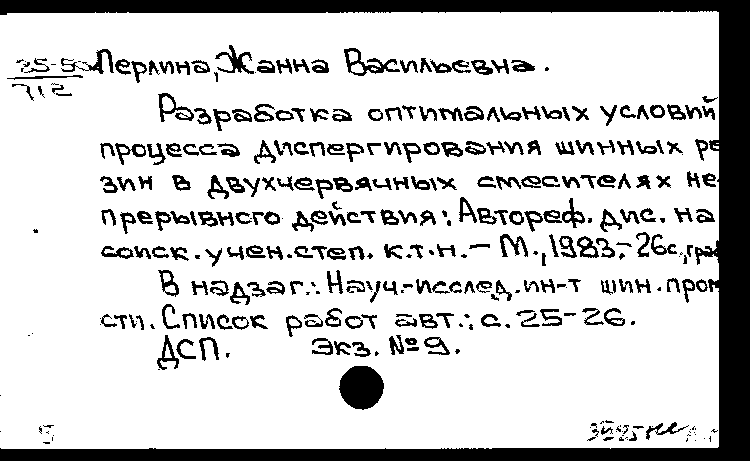 25-5 Перлина, Жанна Васильевна.
712
Разработка оптимальных условий
процесса диспергирования шинных ре
зин в двухчервячных смесителях не-
прерывного действия: Автореф. дис. на
соиск. учен. степ. к.т.н. - М., 1983. - 26с., граф
В надзаг.: Науч.-исслед. ин-т шин. пром
сти. Список работ авт.: с. 25-26.
ДСП. Экз. №9.